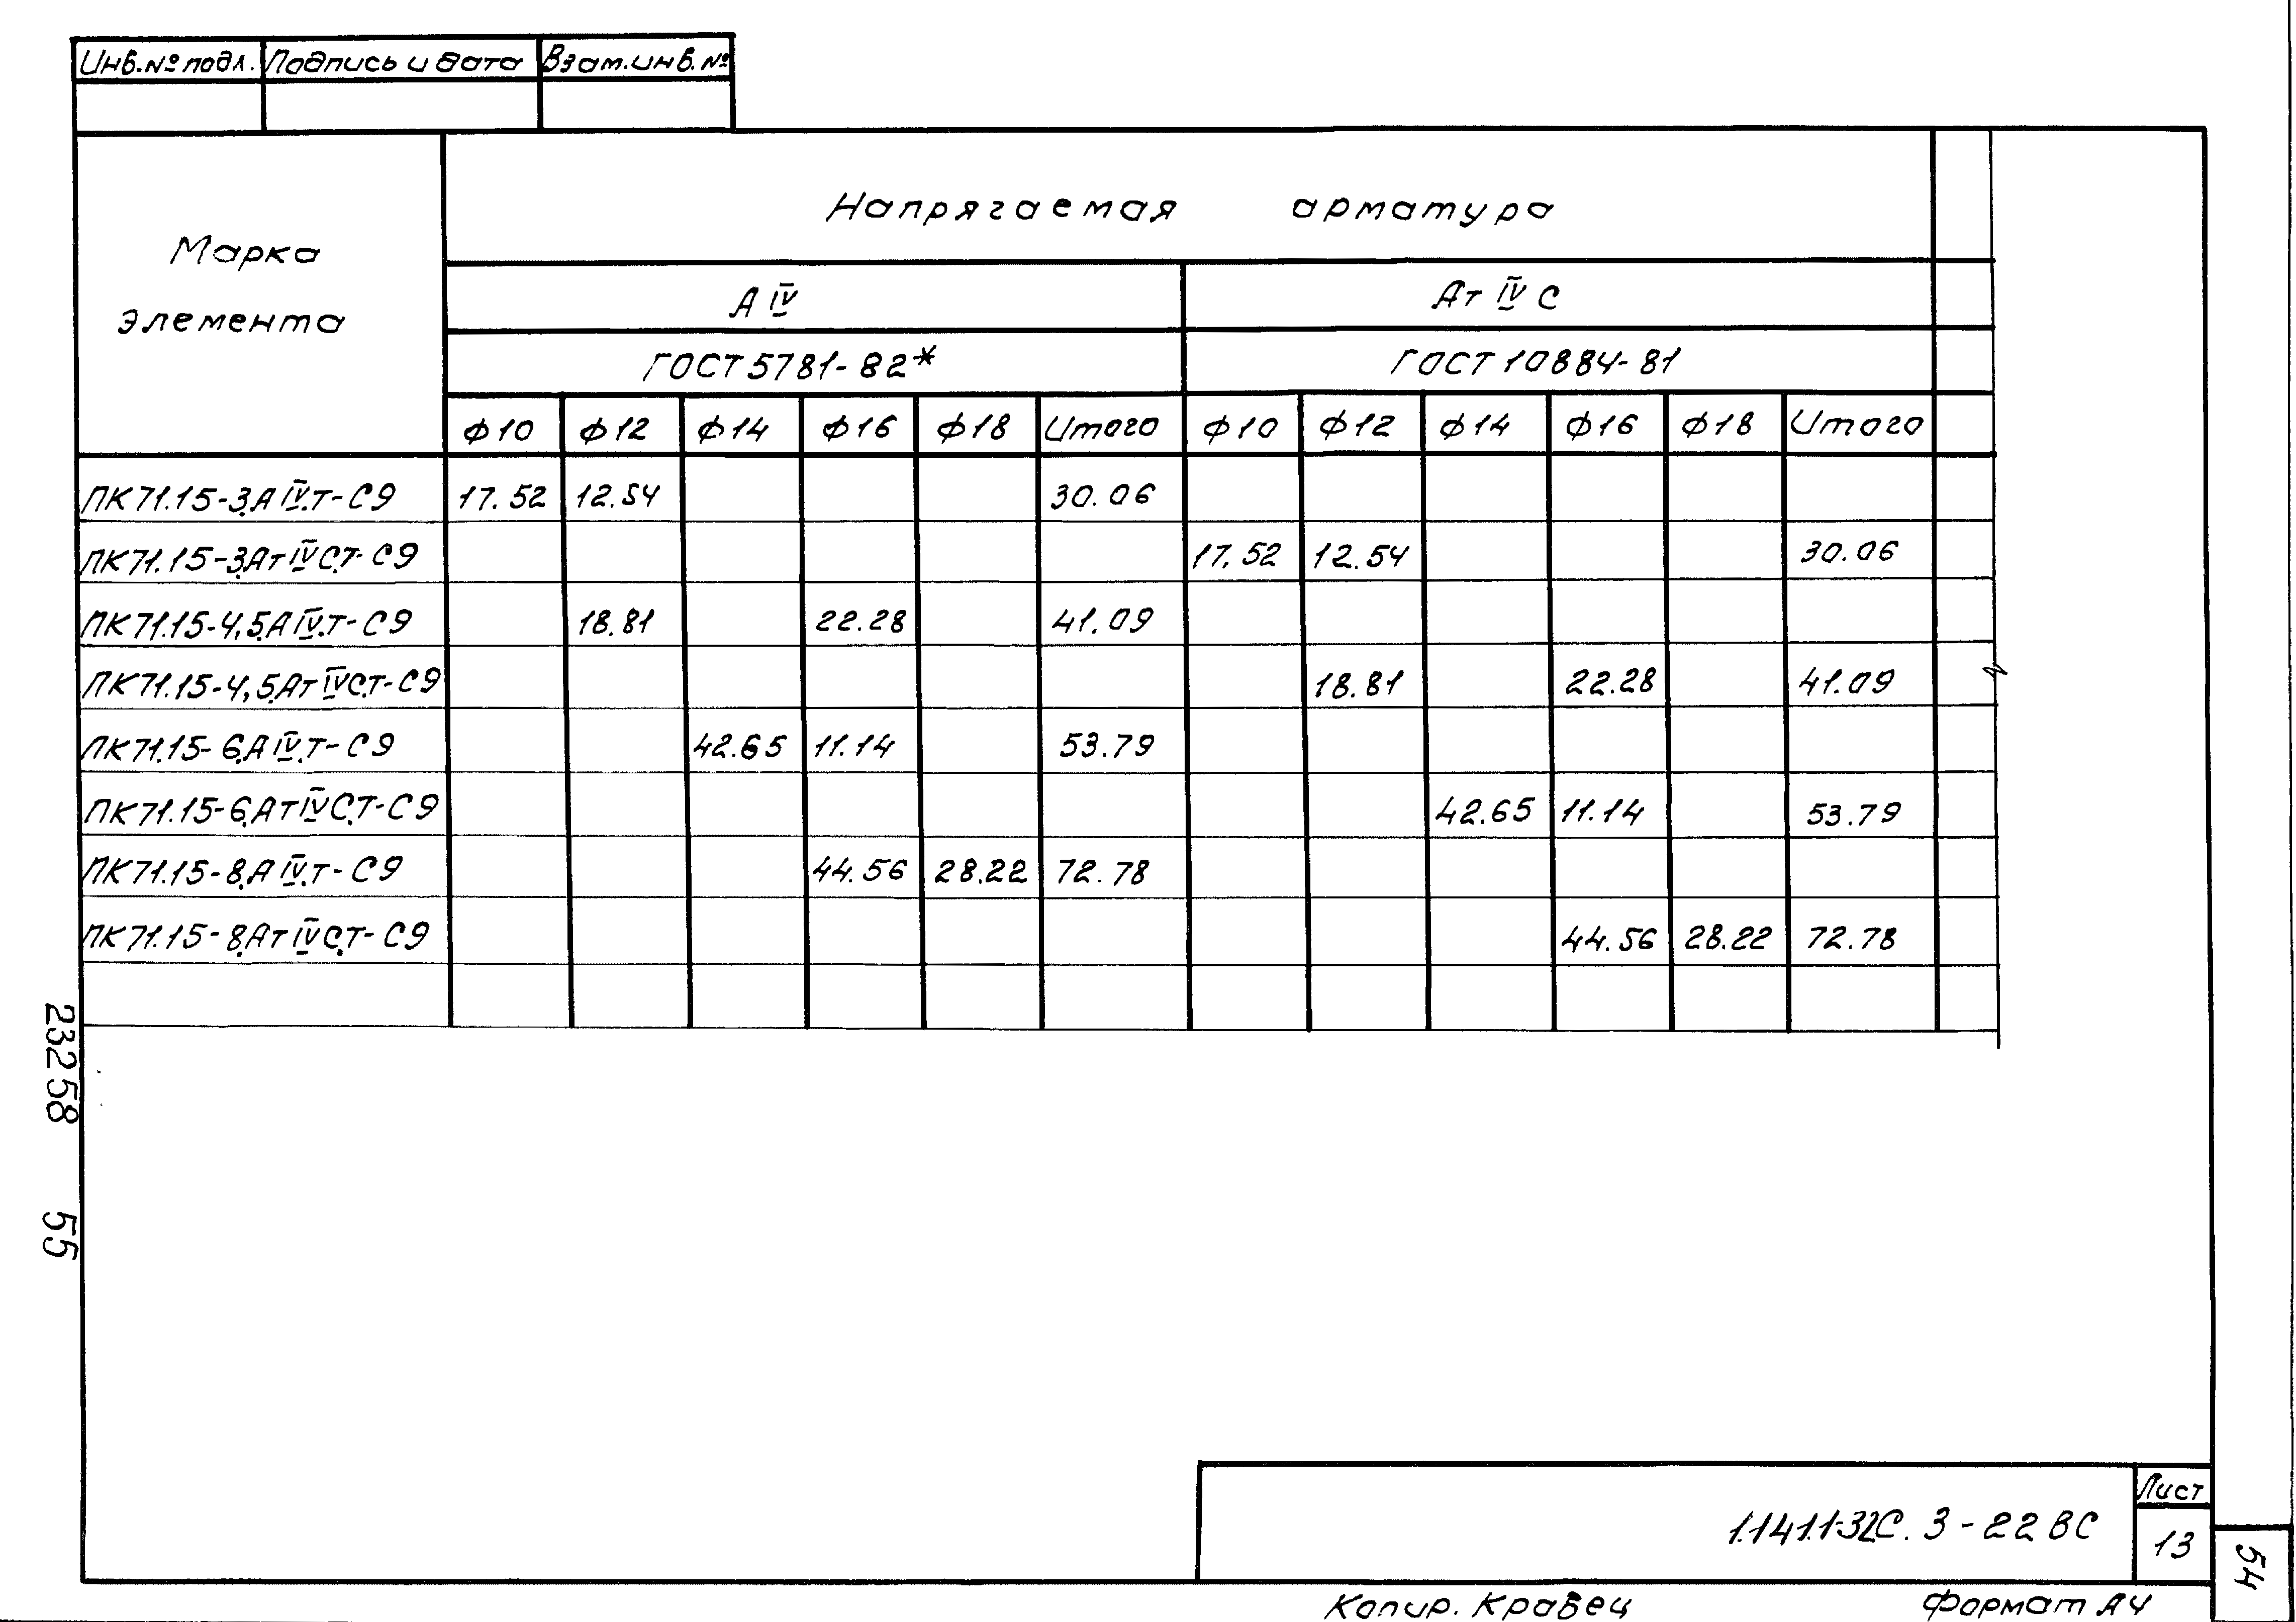 Инв.№ подл. Подпись и дата Взам.инв.№
Марка элемента
Напрягаемая арматура
А IV Ат IV С
ГОСТ 5781-82* ГОСТ 10884-81
Ф10 Ф12 Ф14 Ф16 Ф18 Итого Ф10 Ф12 Ф14 Ф16 Ф18 Итого
ПК71.15-3.А IV.т-С9 17.52 12.54 30.06
ПК71.15-3.Ат IV С.т-С9 17.52 12.54 30.06
ПК71.15-4,5.А IV.т-С9 18.81 22.28 41.09
ПК71.15-4,5.Ат IV С.т-С9 18.81 22.28 41.09
ПК71.15-6.А IV.т-С9 42.65 11.14 53.79
ПК71.15-6.Ат IV С.т-С9 42.65 11.14 53.79
ПК71.15-8.А IV.т-С9 44.56 28.22 72.78
ПК71.15-8.Ат IV С.т-С9 44.56 28.22 72.78
23258 55
1.141.1-32С. 3-22 ВС
Лист
13
54
Копир. Кравец Формат А4